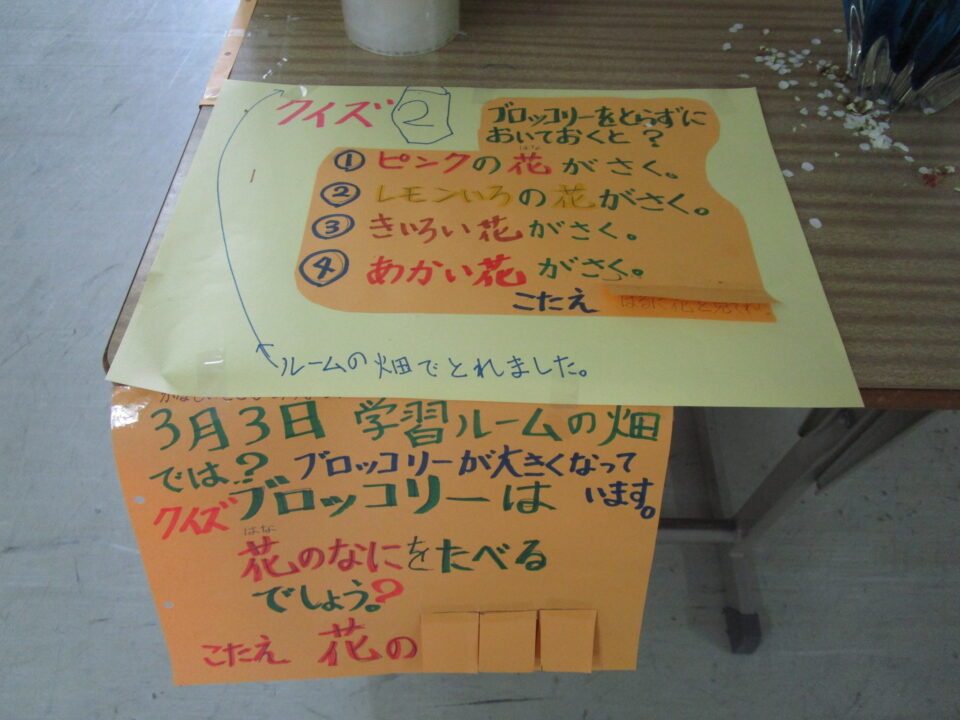 クイズ 2
ブロッコリーをとらずに
おいておくと?
はな
① ピンクの花がさく。
② レモンいろの花がさく。
③ きいろい花がさく。
④ あかい花がさく。
こたえ
ルームの畑でとれました。
3月3日 学習ルームの畑
では? ブロッコリーが大きくなって
います。
クイズ ブロッコリーは
はな
花のなにをたべる
でしょう。?
こたえ 花の